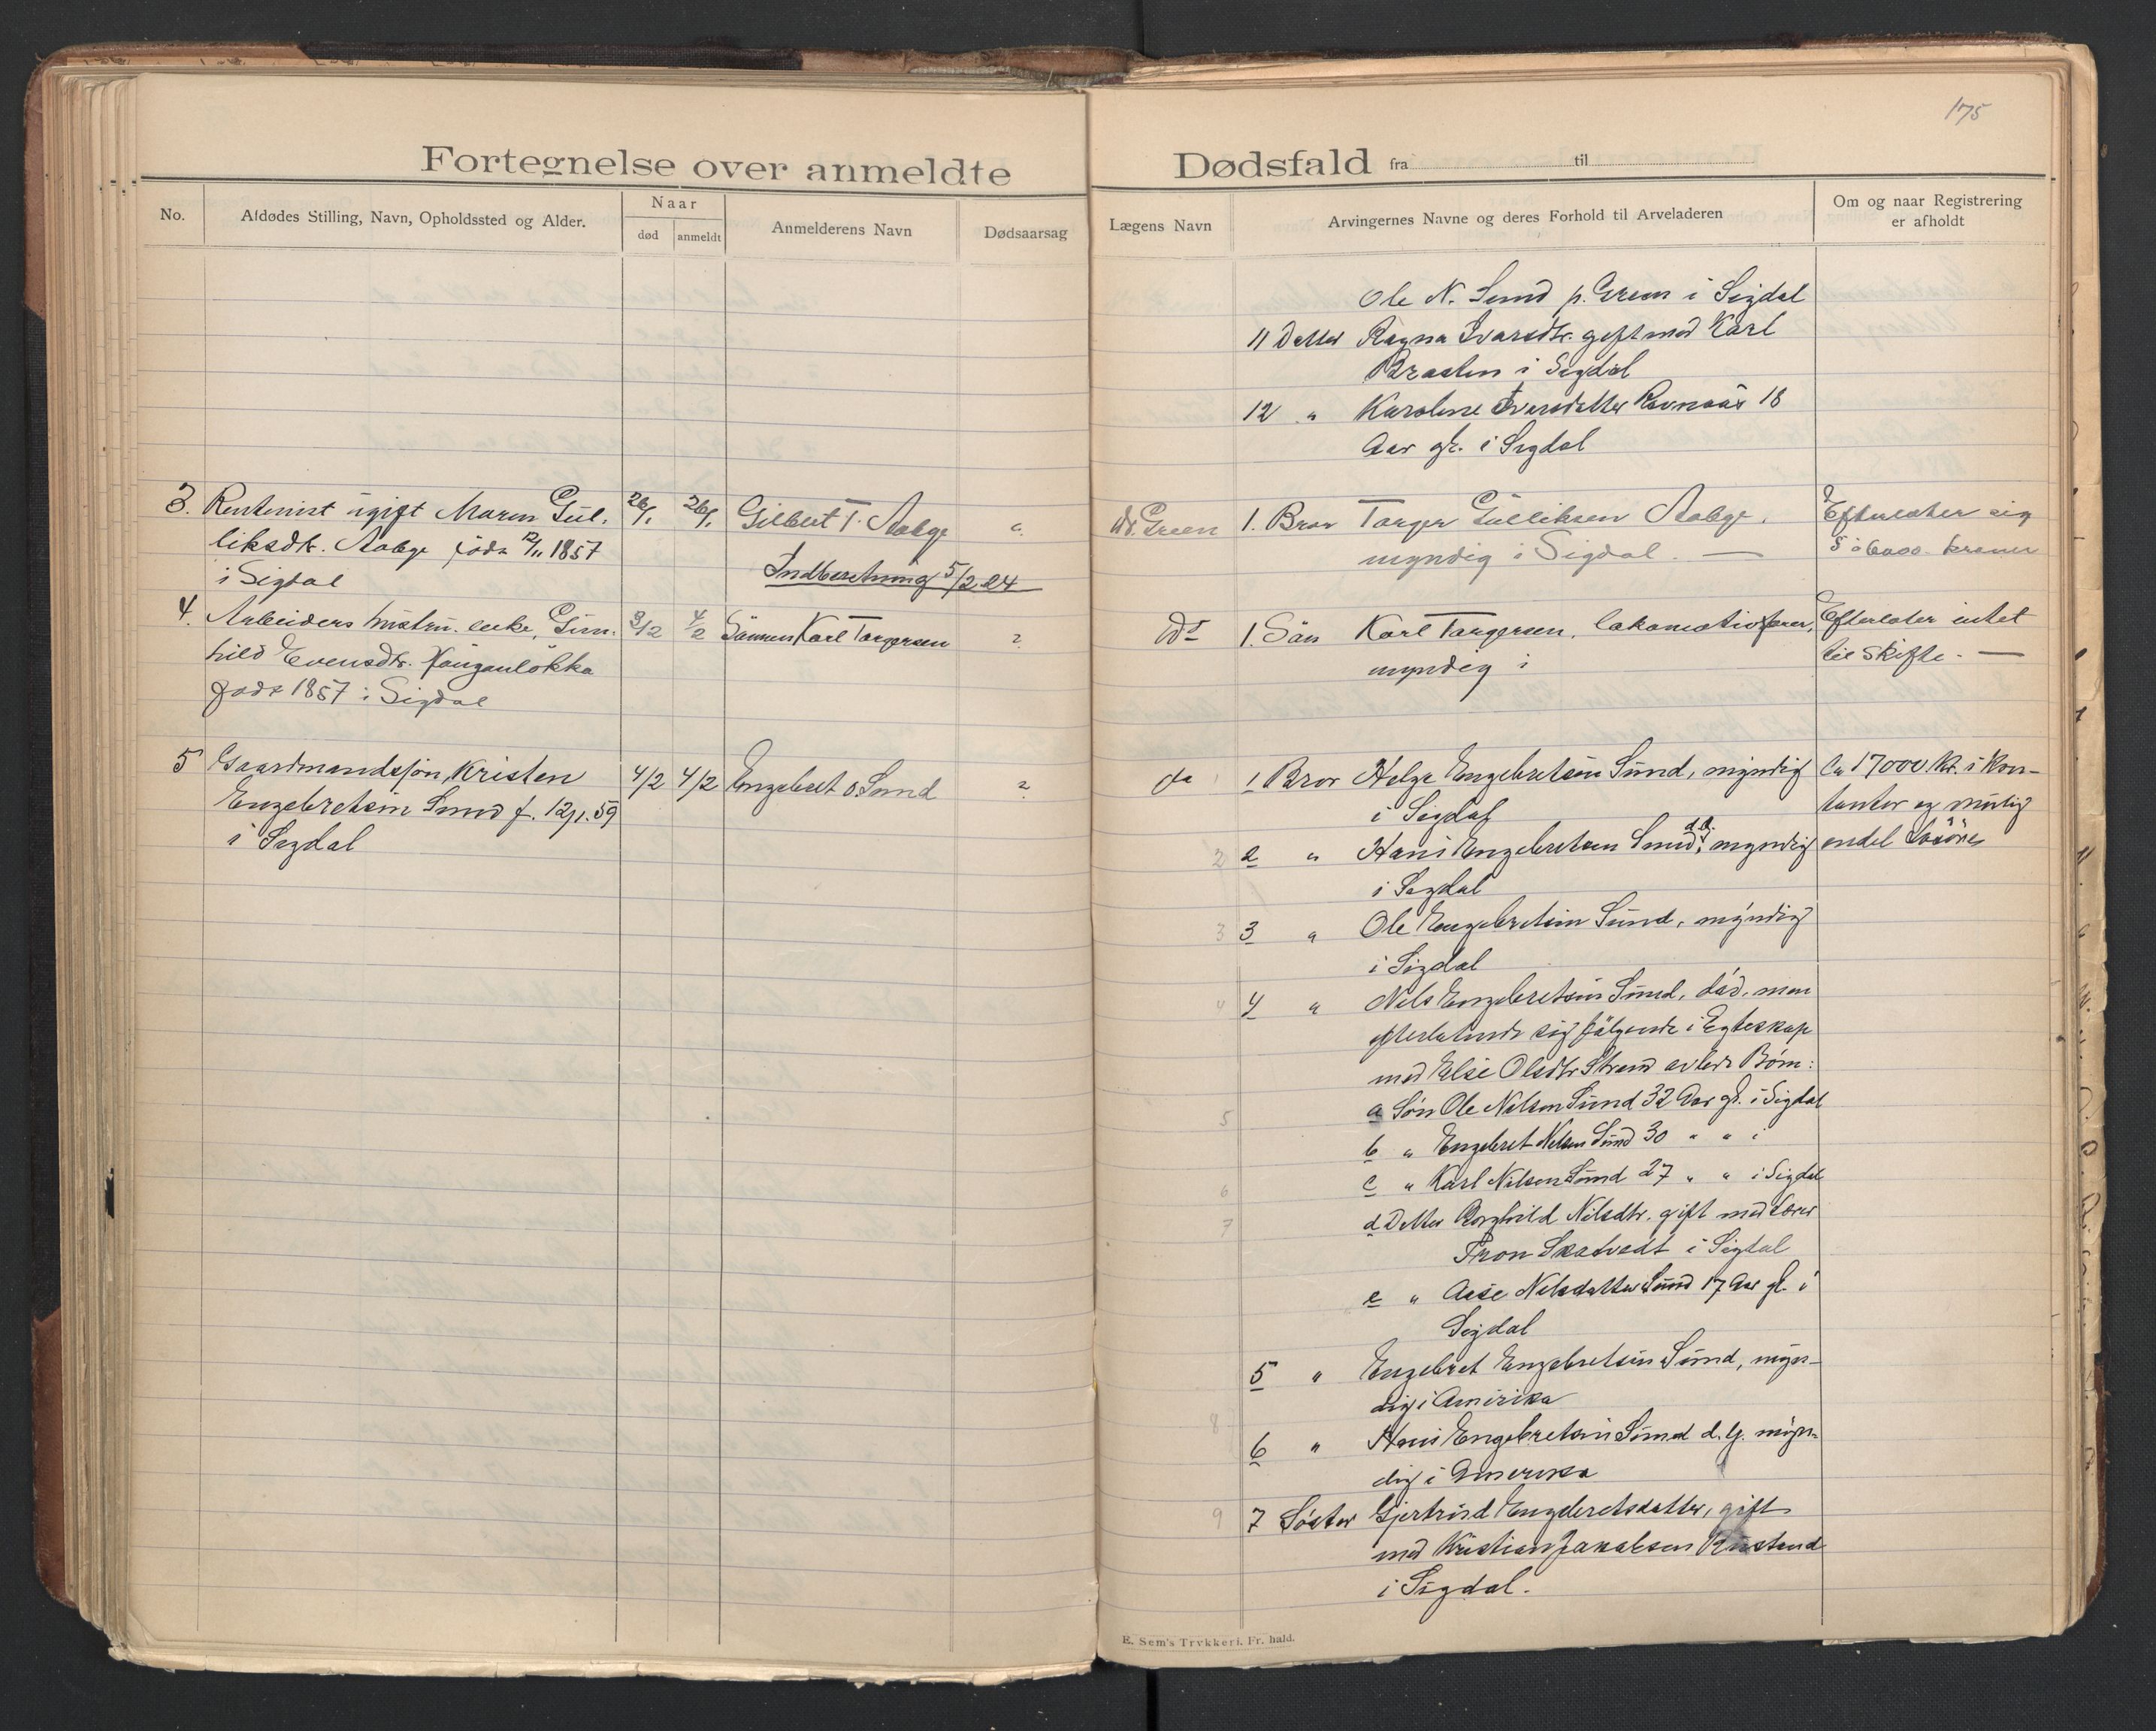 175
Fortegnelse over anmeldte Dødsfald fra til
No.
Afdødes Stilling, Navn, Opholdssted og Alder.
Naar
død
anmeldt
Anmelderens Navn
Dødsaarsag
Lægens Navn
Arvingernes Navne og deres Forhold til Arveladeren
Om og naar Registrering
er afholdt
Ole N. Sund p. Green i Sigdal
11 Datter Ragna Ivarsdtr. gift med Karl
Braaten i Sigdal
12 " Karoline Ivarsdatter Ravnaas 18
Aar gl. i Sigdal
3. Rentenist ugift Maren Gul-
liksdtr. Aabge född 12/11 1857
i Sigdal
26/1 26/1 Gilbert T. Aabge
Indberetning 5/2 24
Dr. Green
1. Bror Torger Gulliksen Aabge.
myndig i Sigdal. —
Efterlater sig
5 à 6000 kroner
4. Arbeiders hustru. enke, Gun-
hild Evensdtr. Hauganløkka
född 1857 i Sigdal
3/2 4/2 Sønnen Karl Torgersen ?
Do
1. Søn Karl Torgersen, lokomotivfører,
myndig i
Efterlater intet
til skifte. —
5 Gaardmandssøn Kristen
Engebretsen Sund f. 12/1. 59
i Sigdal
4/2 4/2 Engebret O Sund ?
do
1 Bror Helge Engebretsen Sund, myndig
i Sigdal
Ca 17000 kr. i kon-
tanter og mulig
endel løsøre
2 2 " Hans Engebretsen Sund d.æ., myndig
i Sigdal
3 3 " Ole Engebretsen Sund, myndig
i Sigdal
4 4 " Nels Engebretsen Sund, död, men
efterlatende sig følgende i Egteskap
med Else Olsdtr Strand avlede Börn:
5 a Søn Ole Nelsen Sund 32 Aar gl. i Sigdal
b " Engebret Nelsen Sund 30 " " i
6 c " Karl Nelsen Sund 27 " " i Sigdal
7 d Datter Borghild Nilsdtr. gift med Lærer
Tron Skatvedt i Sigdal
e " Aase Nelsdatter Sund 17 Aar gl. i
Sigdal
5 " Engebret Engebretsen Sund, myn-
dig i Amerika
8 6 " Hans Engebretsen Sund d.y. myn-
dig i Amerika
9 7 Söster Gjertrud Engebretsdatter, gift
med Kristian Jakobsen Rustand
i Sigdal.
E. Sem's Trykkeri. Fr. hald.